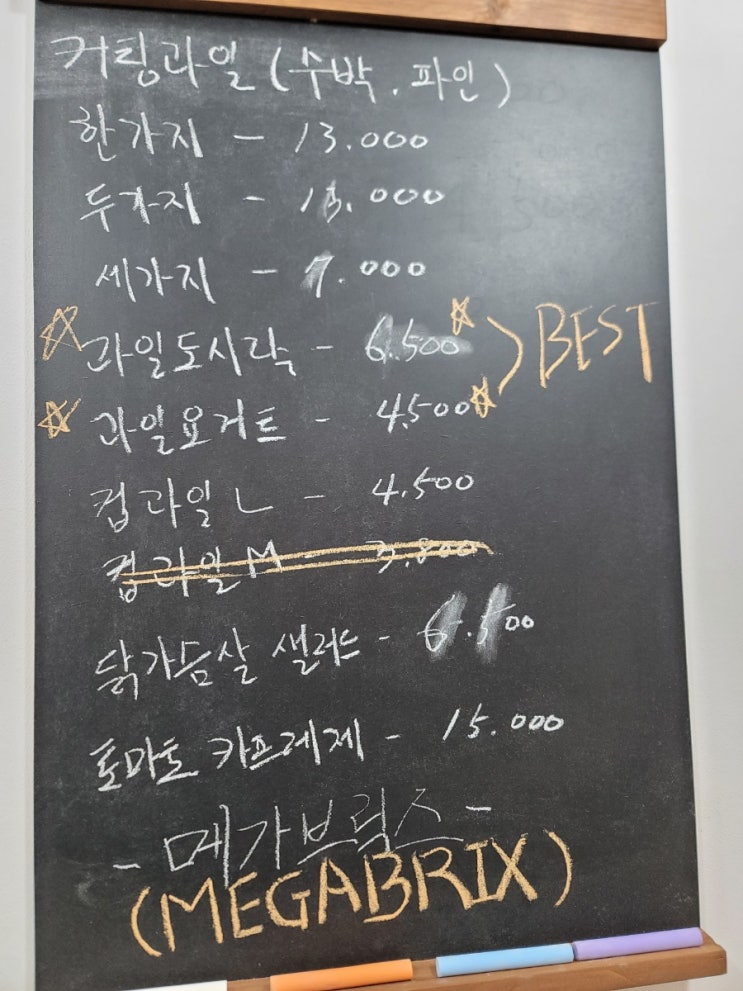 커팅과일 (수박. 파인)
한가지 - 13.000
두가지 - 13.000
세가지 - 7.000
과일도시락 - 6.500
과일요거트 - 4.500
> BEST
컵과일 L - 4.500
컵과일 M - 3.800
닭가슴살 샐러드 - 6.500
토마토 카프레제 - 15.000
- 메가브릭스 -
(MEGABRIX)